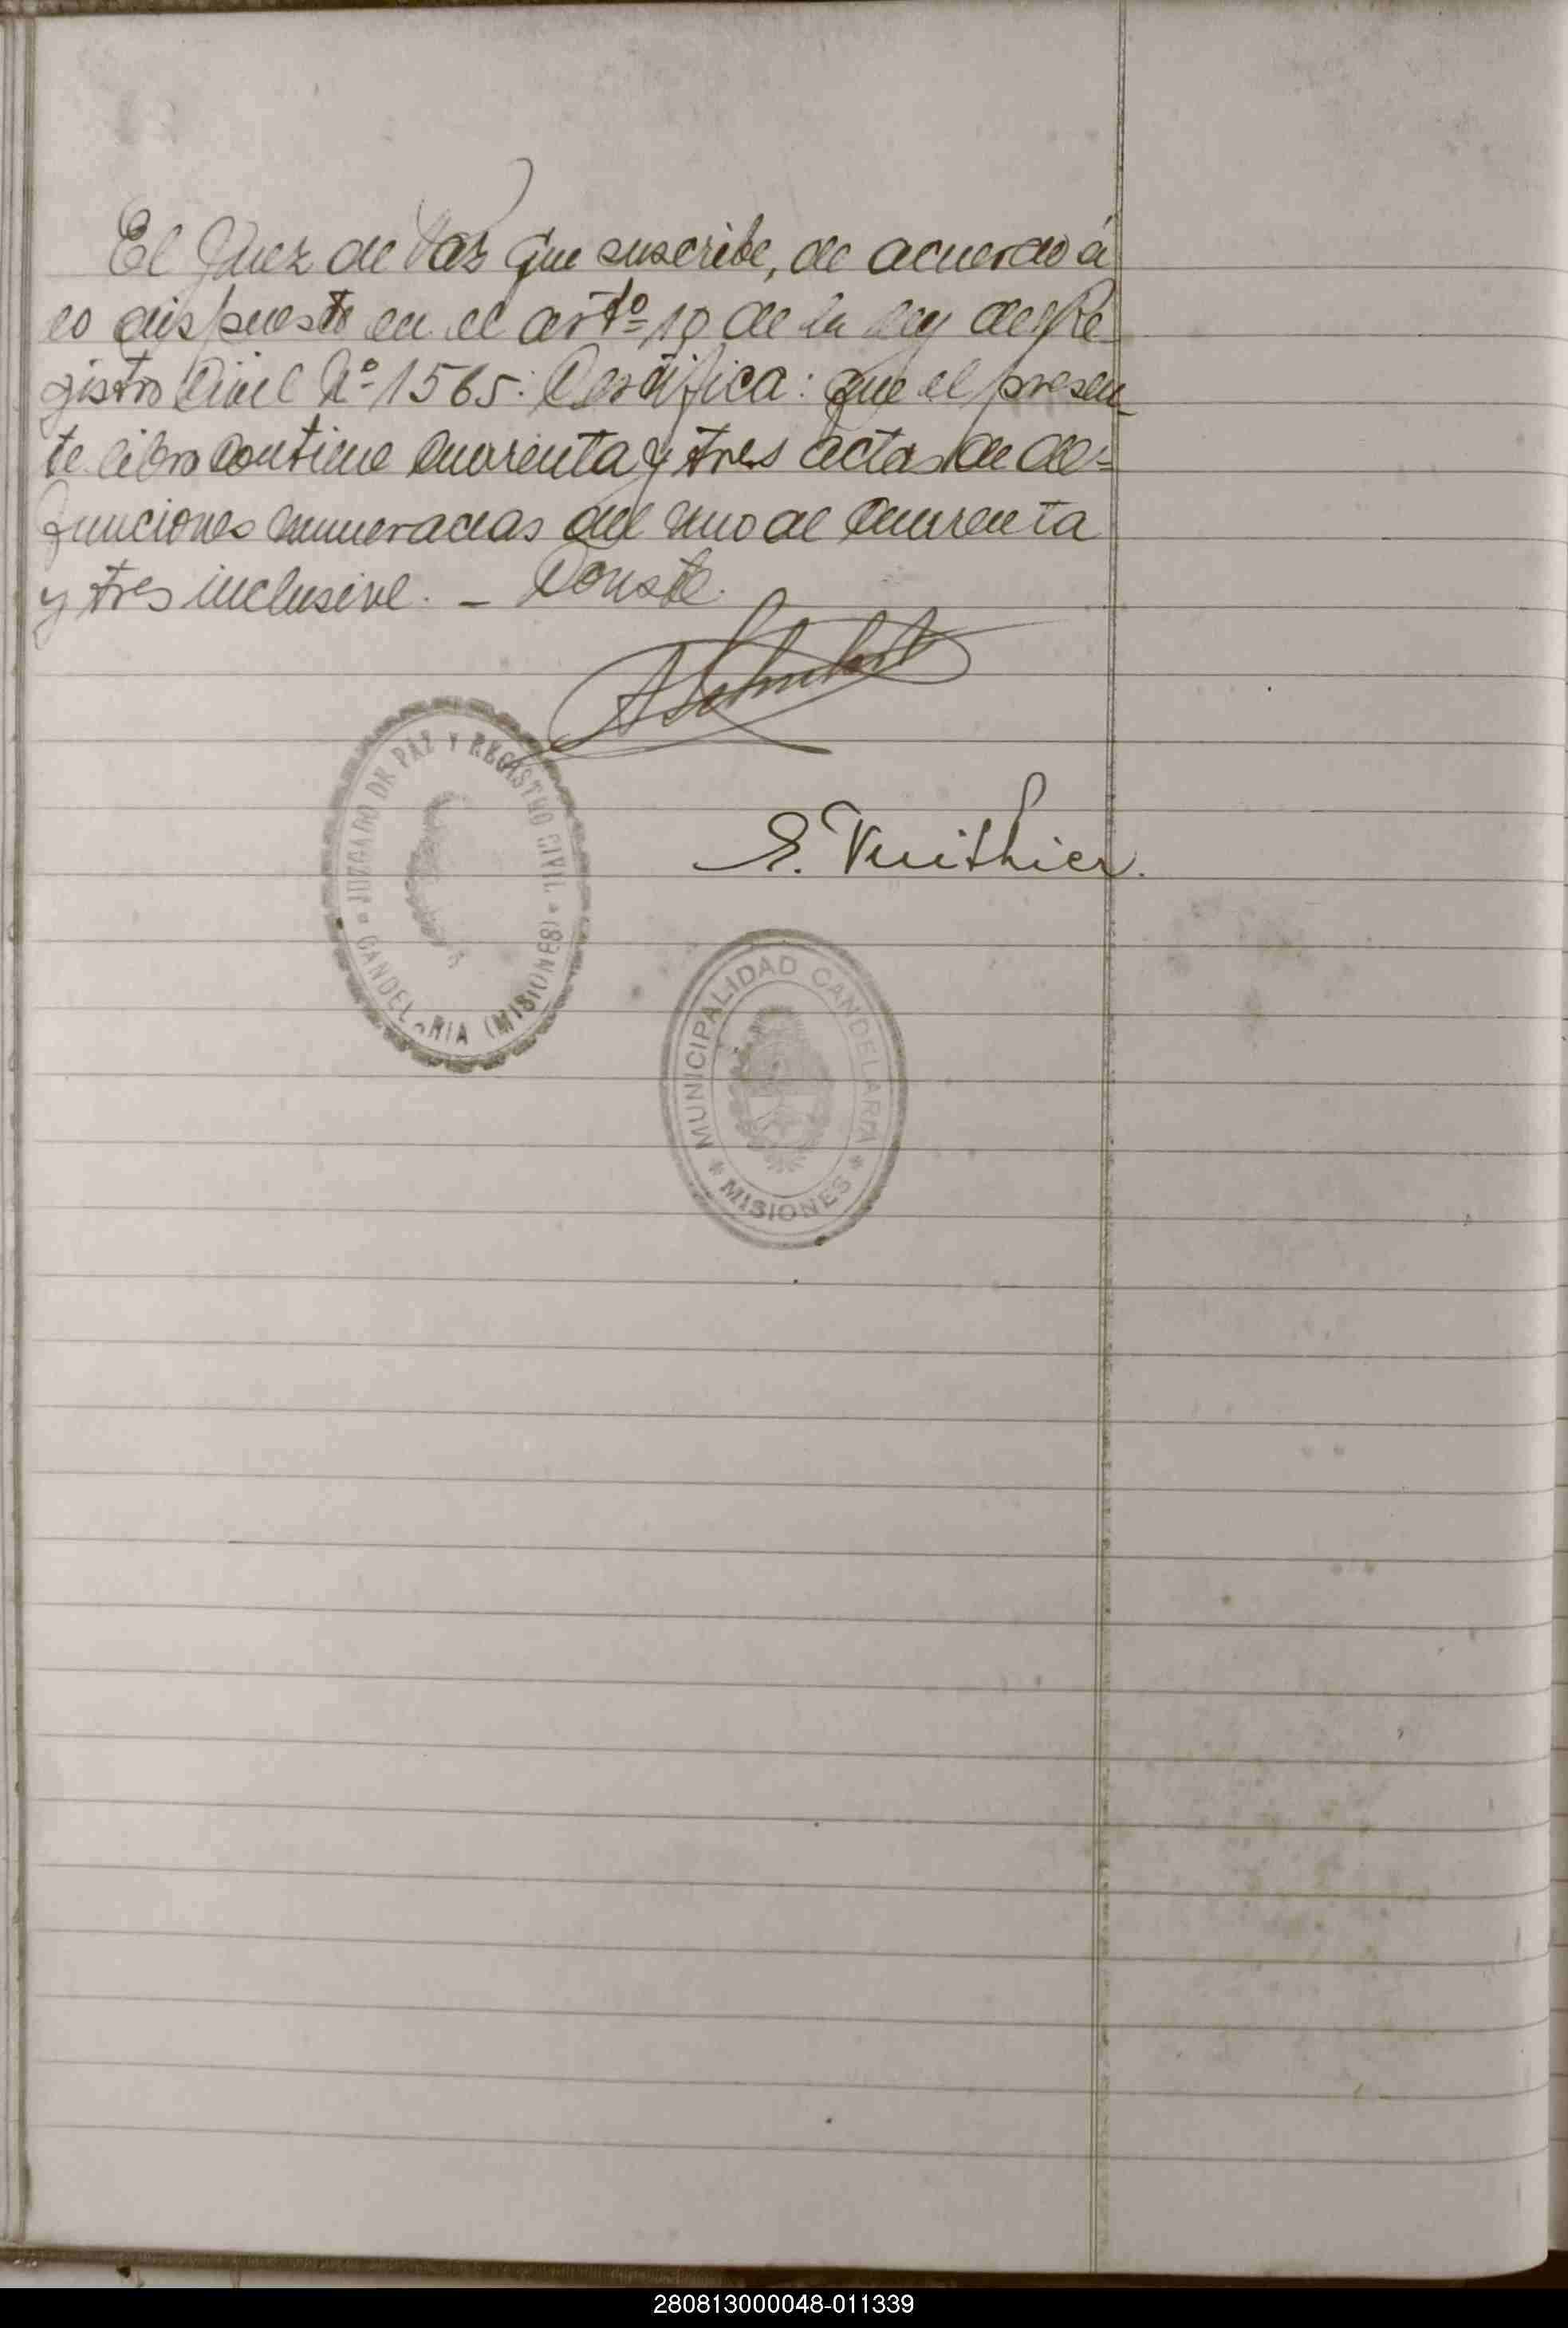 El Juez de Paz que suscribe, de acuerdo á
lo dispuesto en el artº 10 de la ley del Re
gistro Civil Nº 1565: Certifica: que el presen-
te libro contiene cuarenta y tres actas de de=
funciones numeradas del uno al cuarenta
y tres inclusive. – Conste.
JUZGADO DE PAZ Y REGISTRO CIVIL
CANDELARIA (MISIONES)
E. Vuithier.
MUNICIPALIDAD CANDELARIA
* MISIONES *
280813000048-011339